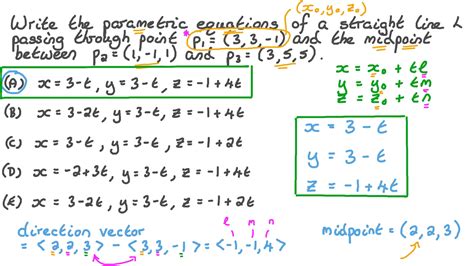 Write the parametric equations of a straight line L
passing through point * p₁ = (3, 3, -1) and the midpoint
between p₂ = (1, -1, 1) and p₃ = (3, 5, 5).
(x₀, y₀, z₀)
(A) x = 3-t, y = 3-t, z = -1+4t
(B) x = 3-2t, y = 3-t, z = -1+4t
(C) x = 3-t, y = 3-t, z = -1+2t
(D) x = -2+3t, y = 3-t, z = -1+4t
(E) x = 3-2t, y = 3-t, z = -1+2t
x = x₀ + tl
y = y₀ + tm
z = z₀ + tn
x = 3 - t
y = 3 - t
z = -1 + 4t
direction vector
l m n
= <2, 2, 3> - <3, 3, -1> = <-1, -1, 4>
midpoint = (2, 2, 3)